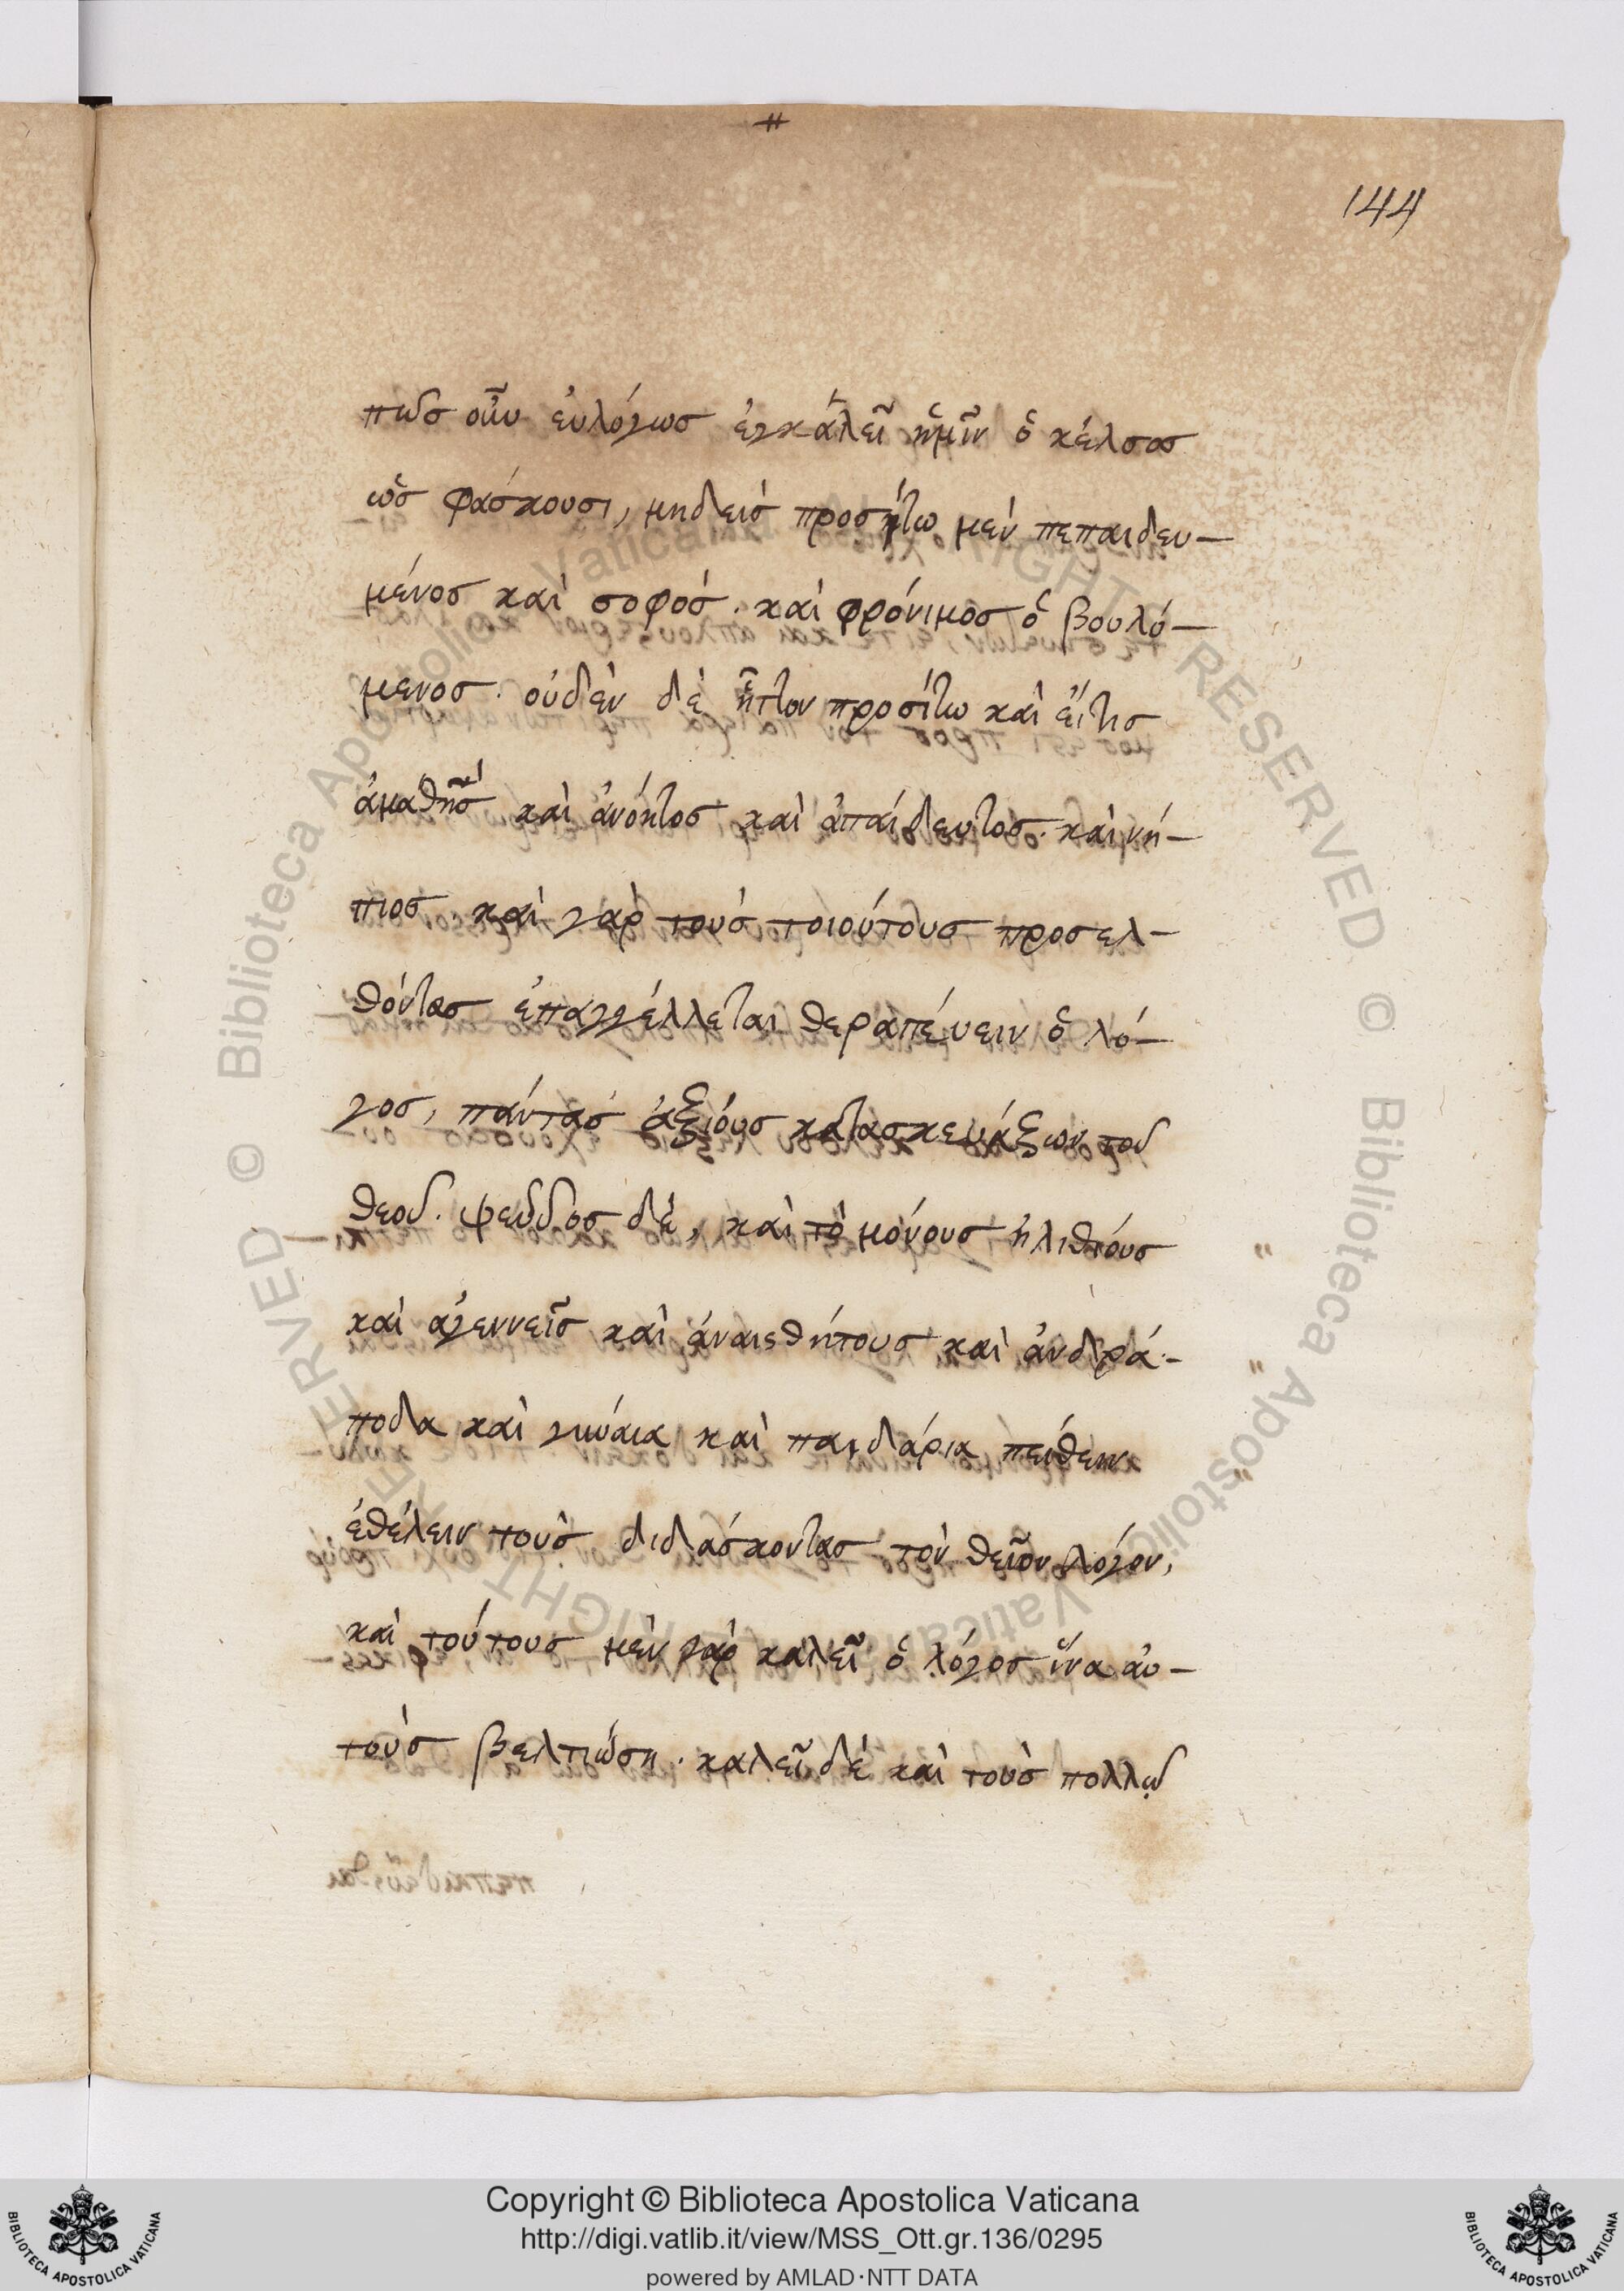 144
πῶσ οὖν ἐυλόγωσ ἐγκάλεῖ ἡμῖν ὁ κέλσοσ
ὡσ φάσκουσι, μηδεισ προσήτω μεν πεπαιδευ—
μένοσ καὶ σοφόσ. καὶ φρόνιμοσ ὁ βουλό—
μενοσ. οὐδὲν δὲ ἧττον προσίτω καὶ εἴτισ
ἀμαθησ καὶ ἀνόητοσ καὶ ἀπαίδευτοσ. καὶ νή—
πιοσ καὶ γαρ τουσ τοιούτουσ προσελ—
θόντασ ἐπαγγέλλεται θεραπέυειν ὁ λό—
γοσ, πάντασ ἀξιόυσ κατασκευάξων τοῦ
θεοῦ. ψεῦδοσ δὲ, καὶ τὸ μόνουσ ἠλιθίουσ
καὶ αγεννεῖσ καὶ ἀναισθήτουσ καὶ ἀνδρά—
ποδα καὶ γύναια καὶ παιδάρια πείθειν
ἐθέλειν τοὺσ διδάσκοντασ τὸν θεῖον λόγον,
καὶ τούτουσ μὲν γὰρ καλεῖ ὁ λόγοσ ἵνα ἀυ—
τοὺσ βελτιώση. καλεῖ δὲ καὶ τοὺσ πολλῷ
Copyright © Biblioteca Apostolica Vaticana
http://digi.vatlib.it/view/MSS_Ott.gr.136/0295
powered by AMLAD·NTT DATA
BIBLIOTECA APOSTOLICA VATICANA
BIBLIOTECA APOSTOLICA VATICANA